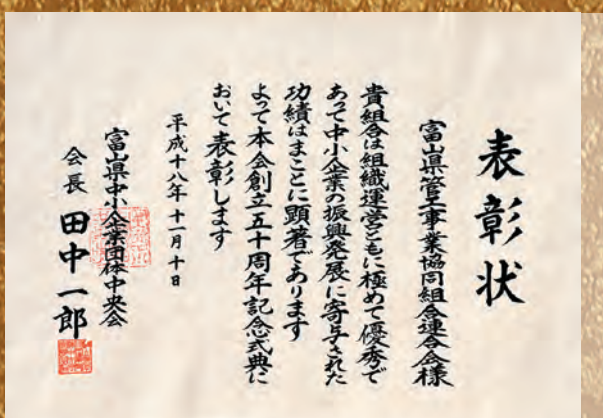 表彰状
富山県管工事業協同組合連合会様
貴組合は組織運営ともに極めて優秀で
あって中小企業の振興発展に寄与された
功績はまことに顕著であります
よって本会創立五十周年記念式典に
おいて表彰します
平成十八年十一月十日
富山県中小企業団体中央会
会長 田中一郎